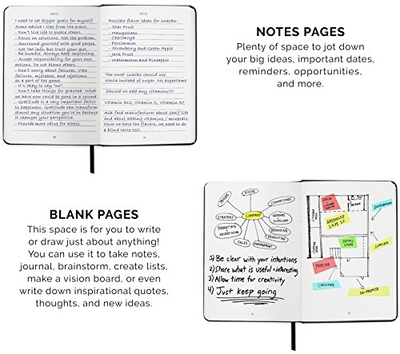 NOTES
I need to set bigger goals for myself.
Some advice I like from the event:
- Don't live life to please others.
- Focus on solutions. Not the problem.
- Surround yourself with good people.
- Get the info, but trust your gut.
- Be humble. Always keep improving.
- Accept responsibility for your own
actions. Do not blame others.
- Don't worry about failures. View
failures, mistakes, and rejections
as a part of the game.
- It's okay to say "no".
- Don't take things for granted. What
we have now could be gone in a second.
- Gratitude is a very important factor
to happiness. Gratitude can transform
almost any situation you're in because
it changes your perspective.
- Provide more value for others.
NOTES
Possible flavor ideas for snacks:
- Jack Fruit
- Mangosteen
- Cherimoya
- Persimmon
- Strawberry and Green Apple
- Jack Fruit
- Watermelon and Pineapple
The sweet snacks should use
instead of sugar. No
Should we add any vitamins???
Vitamin B12, Vitamin C, Vitamin D?
Ask find manufacturers about shelf life
and about adding vitamins / minerals.
Once we have the flavors, we need to do
a blind taste test.
NOTES PAGES
Plenty of space to jot down
your big ideas, important dates,
reminders, opportunities,
and more.
BLANK PAGES
This space is for you to write
or draw just about anything!
You can use it to take notes,
journal, brainstorm, create lists,
make a vision board, or even
write down inspirational quotes,
thoughts, and new ideas.
VISION
STRATEGY
COMPANY
SALES
MANAGEMENT
1) Be clear with your intentions
2) Share what is useful + interesting
3) Allow time for creativity
4) Just keep going